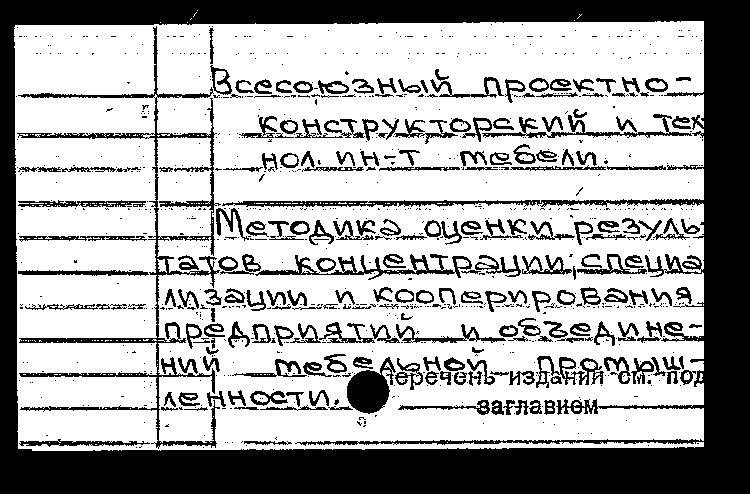 Всесоюзный проектно-
конструкторский и тех
нол. ин-т мебели.
Методика оценки резуль-
татов концентрации, специа
лизации и кооперирования
предприятий и объедине-
ний мебельной промыш-
ленности.
перечень изданий см. под
заглавием